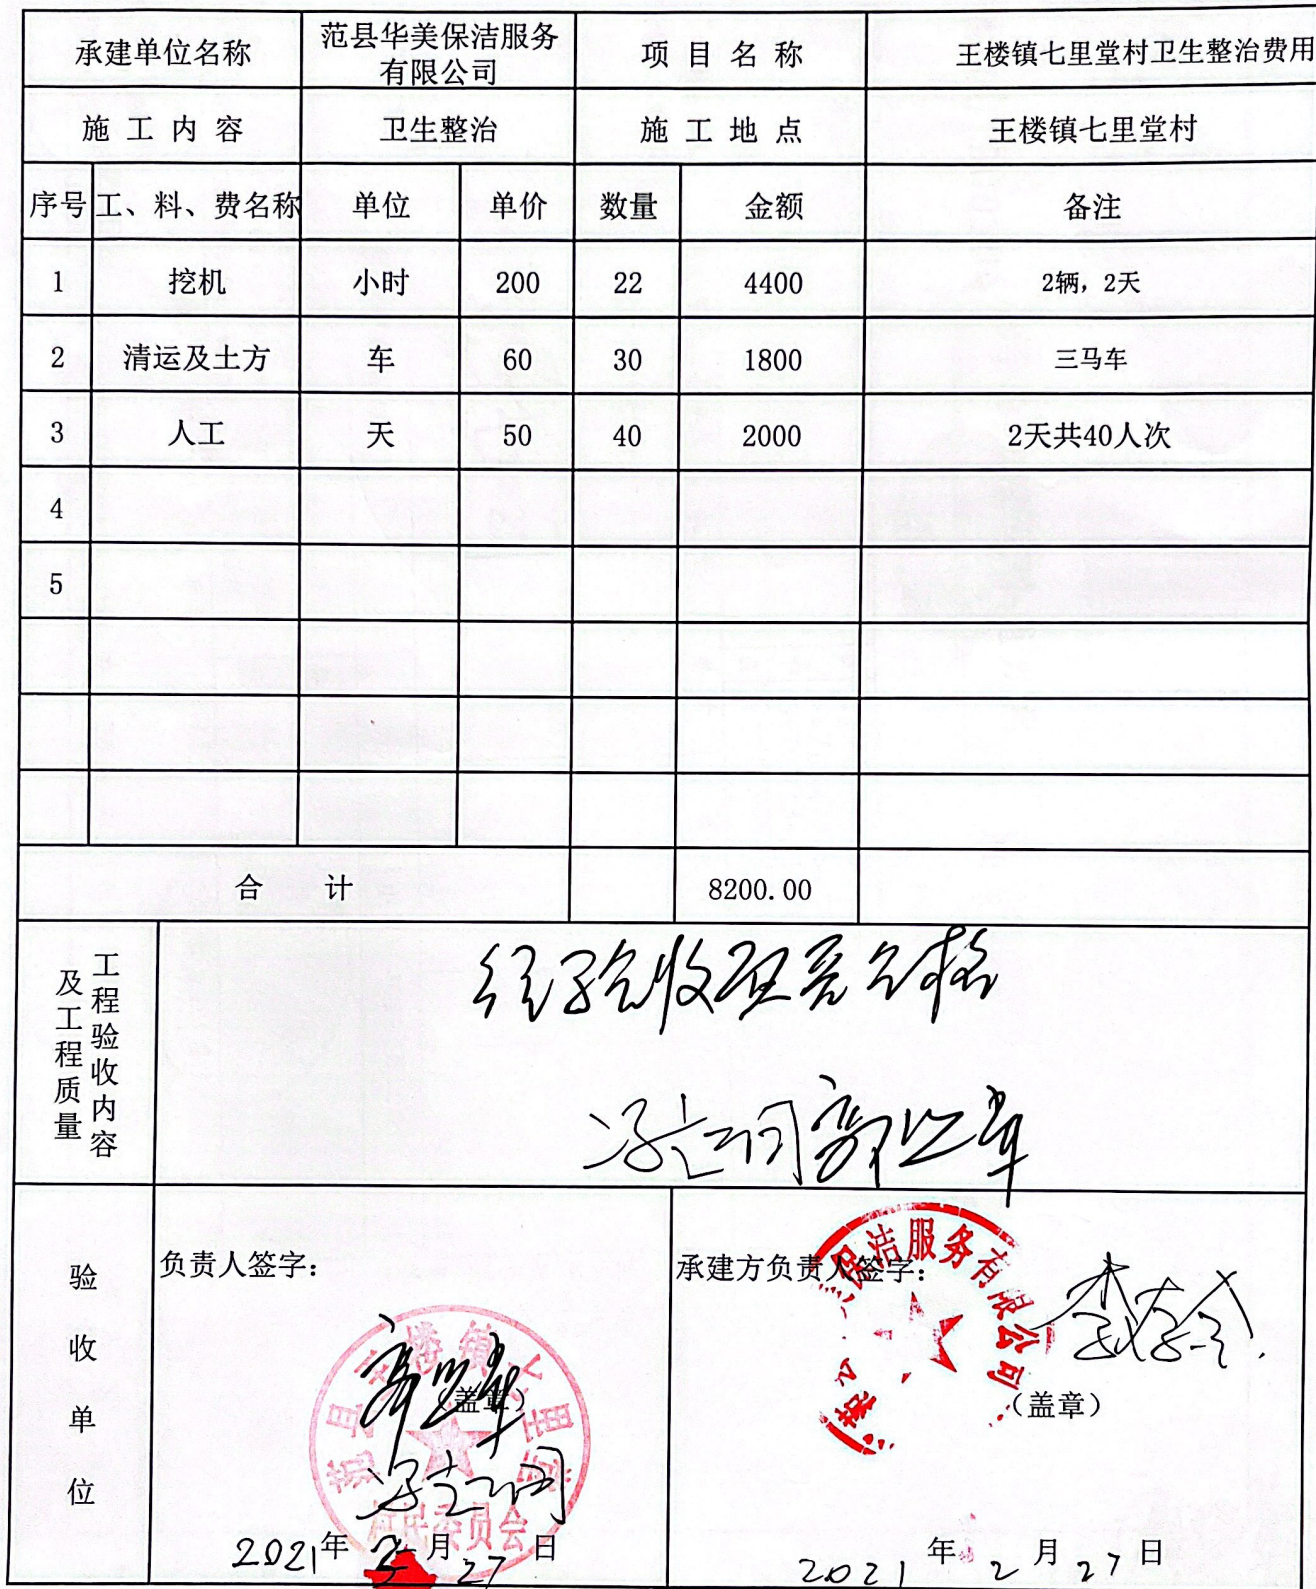 承建单位名称 范县华美保洁服务有限公司 项目名称 王楼镇七里堂村卫生整治费用
施工内容 卫生整治 施工地点 王楼镇七里堂村
序号 工、料、费名称 单位 单价 数量 金额 备注
1 挖机 小时 200 22 4400 2辆，2天
2 清运及土方 车 60 30 1800 三马车
3 人工 天 50 40 2000 2天共40人次
4
5
合计 8200.00
工程验收内容及工程质量
经验收质量合格
验收单位
负责人签字：
（盖章）
范县王楼镇七里堂村民委员会
2021年2月27日
承建方负责人签字：
保洁服务有限公司
（盖章）
2021年2月27日